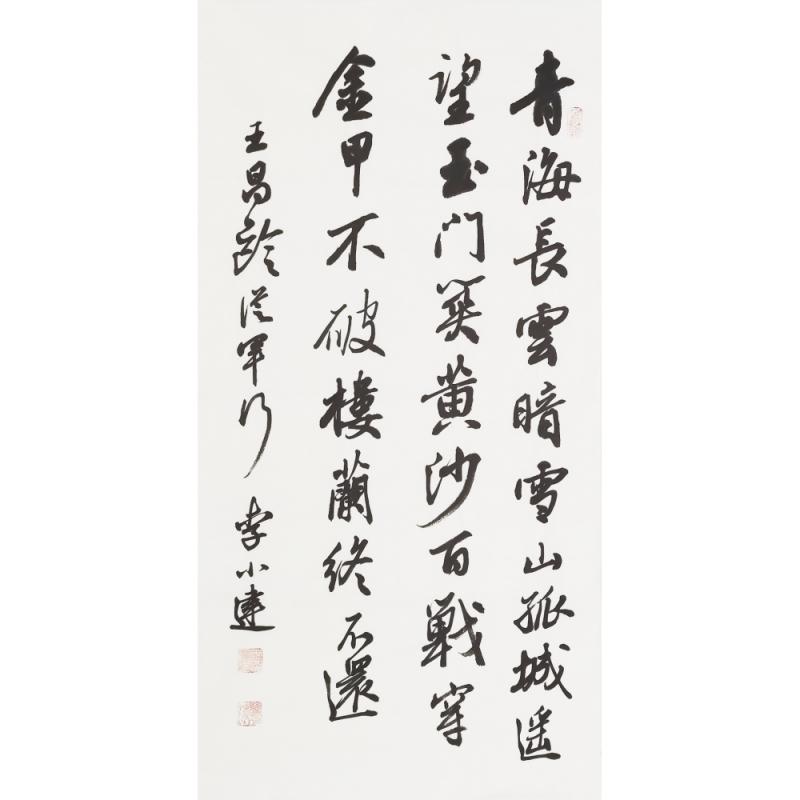 青海長雲暗雪山孤城遥
望玉门関黄沙百戰穿
金甲不破樓蘭终不還
王昌龄從軍行 李小連